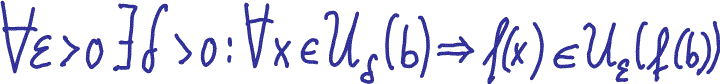 ∀ε>0 ∃δ>0: ∀x∈U_δ(b)⇒f(x)∈U_ε(f(b))